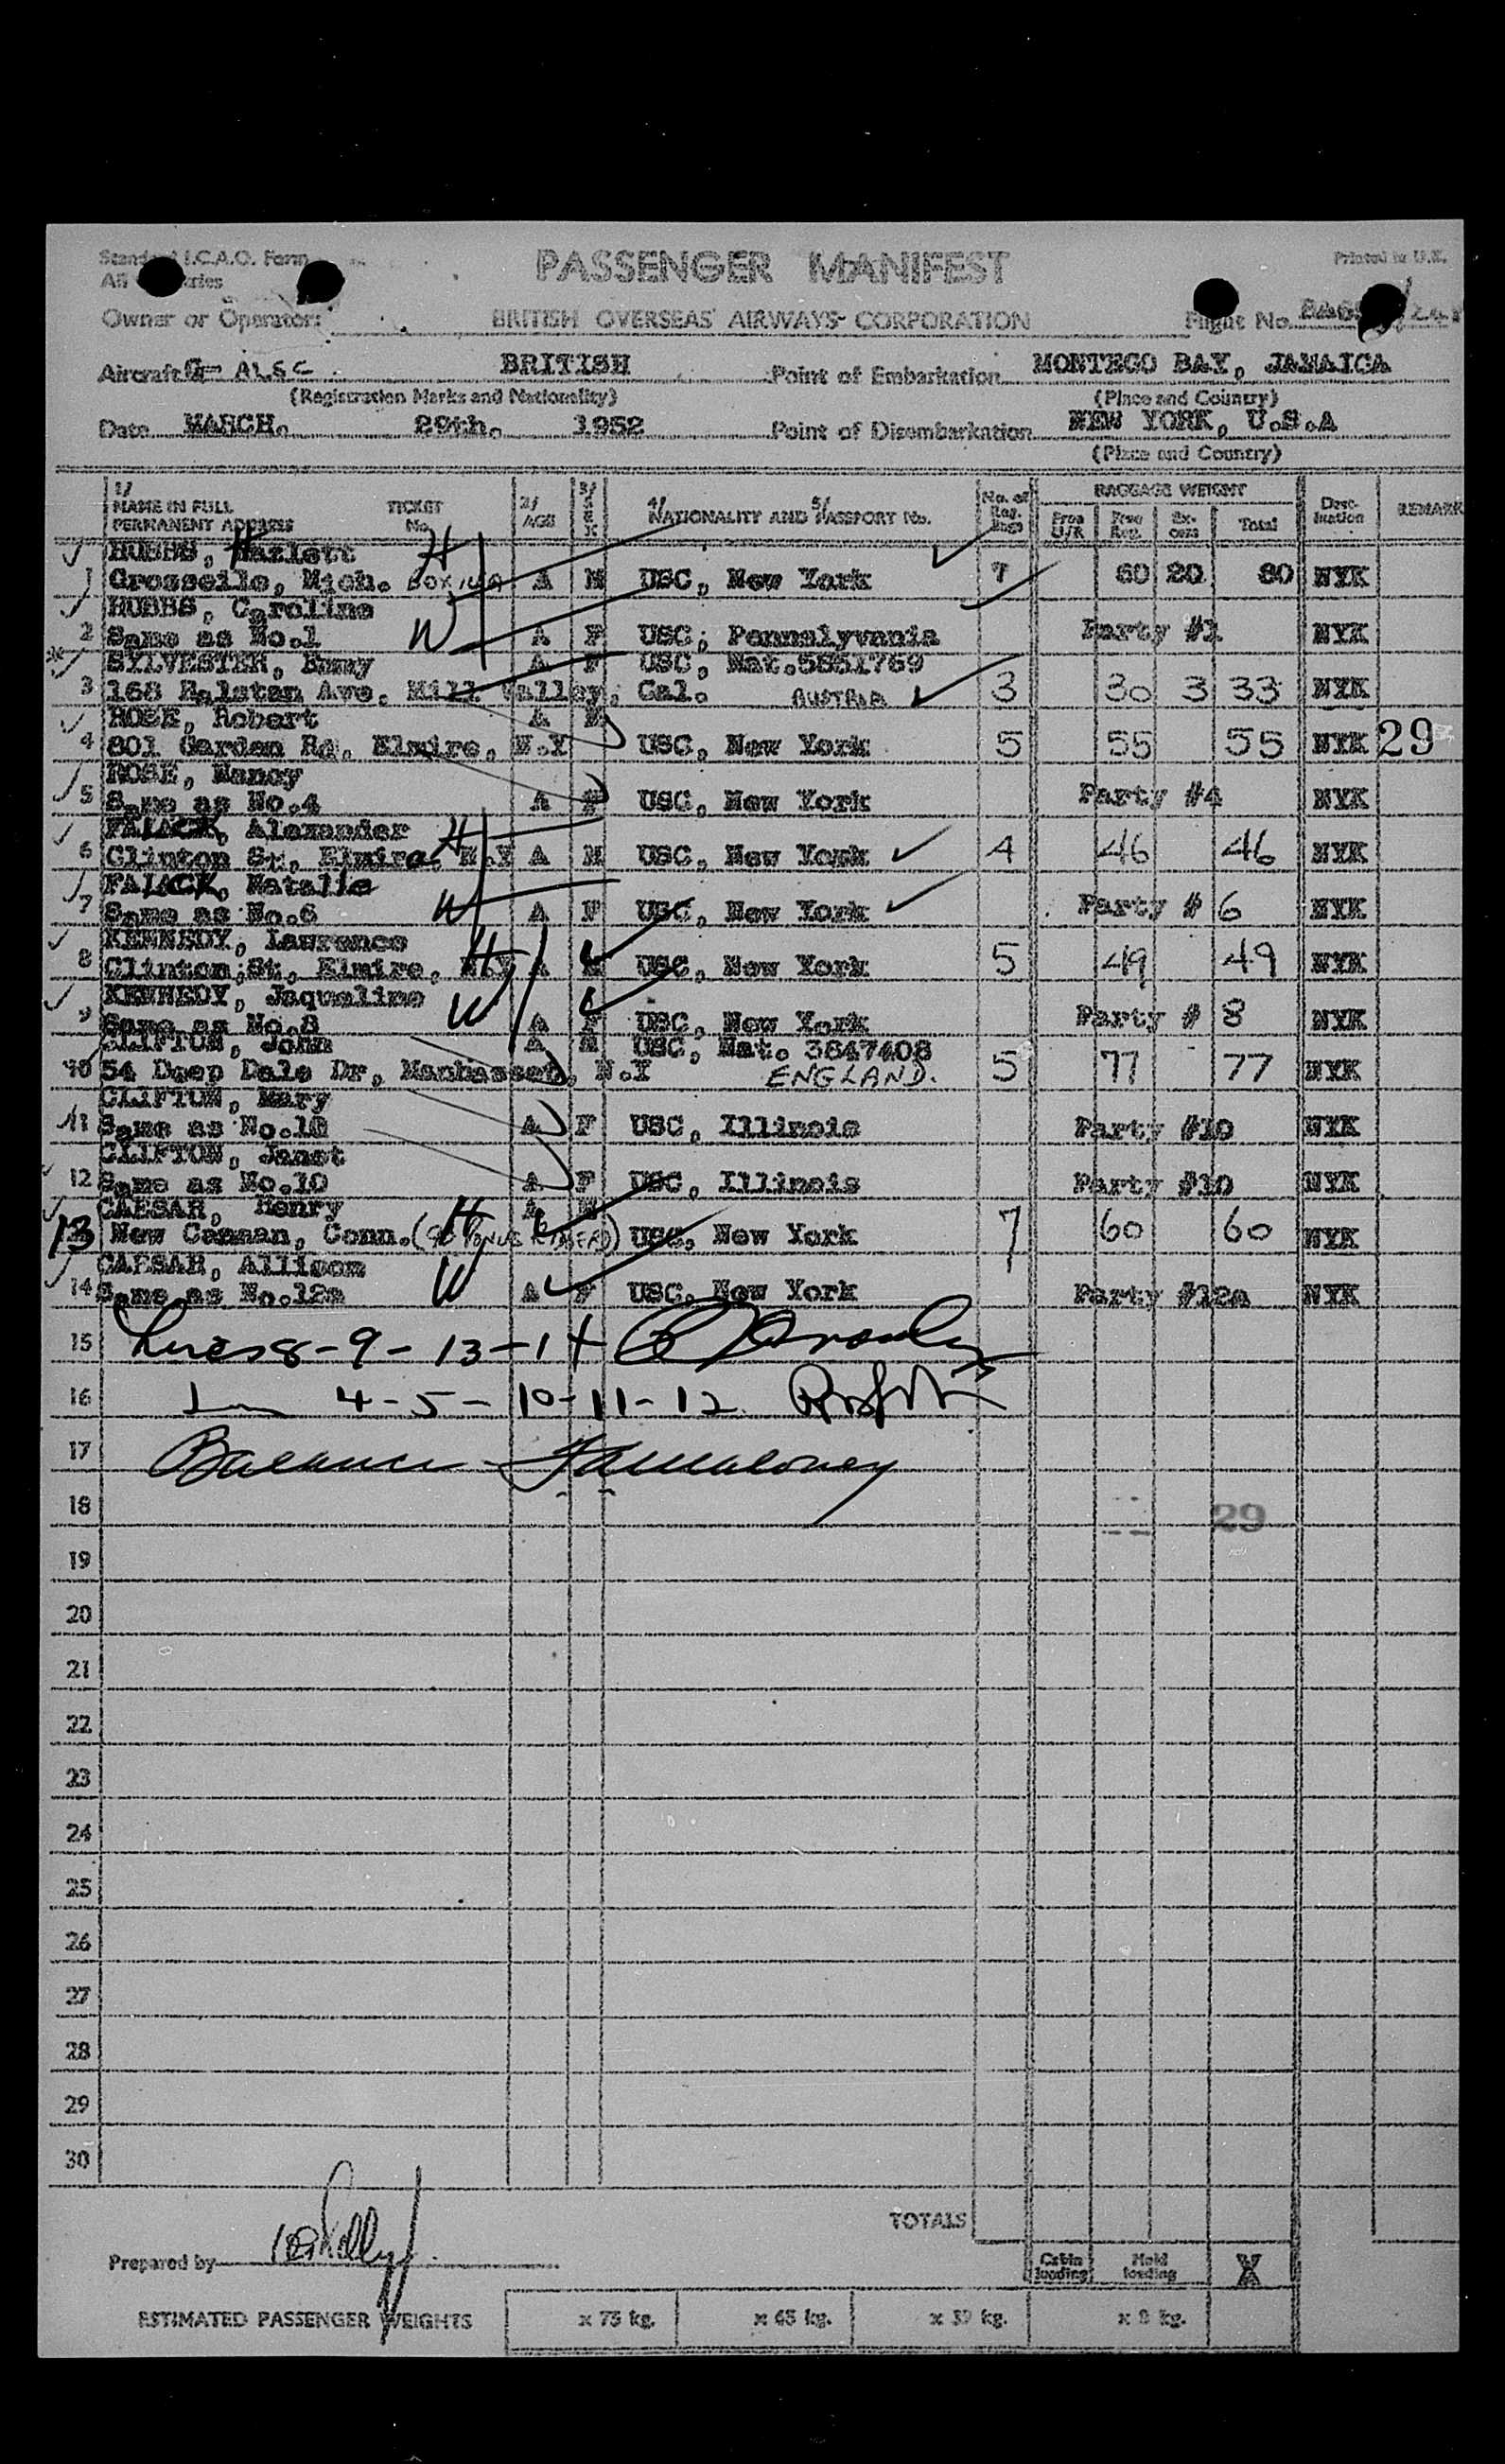 Standard I.C.A.O. Form
PASSENGER MANIFEST
Printed in U.K.
All
Owner or Operator: BRITISH OVERSEAS AIRWAYS CORPORATION Flight No.
Aircraft G-ALSC BRITISH Point of Embarkation MONTEGO BAY, JAMAICA
(Registration Marks and Nationality) (Place and Country)
Date MARCH. 29th. 1952 Point of Disembarkation NEW YORK, U.S.A
(Place and Country)
1/ NAME IN FULL PERMANENT ADDRESS TICKET No. 2/ AGE 3/ SEX 4/ NATIONALITY AND 5/ PASSPORT No. No. of Reg. Bags BAGGAGE WEIGHT Free U/R Free Reg. Ex-cess Total Dest-ination REMARK
HUBBS, Hazlett H
1 Grosseile, Mich. BOX A M USC, New York 7 60 20 80 NYK
HUBBS, Caroline
2 Same as No.1 W A F USC, Pennslyvania Party #1 NYK
SYLVESTER, Emmy A F USC, Nat.5851769
3 168 Ralstan Ave, Mill Valley, Cal. AUSTRIA 3 30 3 33 NYK
ROSE, Robert A M
4 801 Garden Rd, Elmira, N.Y USC, New York 5 55 55 NYK 29
ROSE, Nancy
5 Same as No.4 A F USC, New York Party #4 NYK
FALACK, Alexander H
6 Clinton St, Elmira, N.Y A M USC, New York 4 46 46 NYK
FALACK, Natalie
7 Same as No.6 W A F USC, New York Party # 6 NYK
KENNEDY, Lawrence H
8 Clinton St, Elmira, N.Y A M USC, New York 5 49 49 NYK
KENNEDY, Jaqueline W
9 Same as No.8 A F USC, New York Party # 8 NYK
CLIFTON, John A M USC, Nat. 3847408
10 54 Deep Dale Dr, Manhasset, N.Y ENGLAND. 5 77 77 NYK
CLIFTON, Mary
11 Same as No.10 A F USC, Illinois Party #10 NYK
CLIFTON, Janet
12 Same as No.10 A F USC, Illinois Party #10 NYK
CAESAR, Henry H A M
13 New Cannan, Conn. USC, New York 7 60 60 NYK
CAESAR, Allison
14 Same as No.12a W A F USC, New York Party #12a NYK
15 8-9-13-14
16 4-5-10-11-12
17 Balance
18 29
19
20
21
22
23
24
25
26
27
28
29
30
TOTALS
Prepared by
Cabin loading Hold loading X
ESTIMATED PASSENGER WEIGHTS x 75 kg. x 65 kg. x 39 kg. x 8 kg.